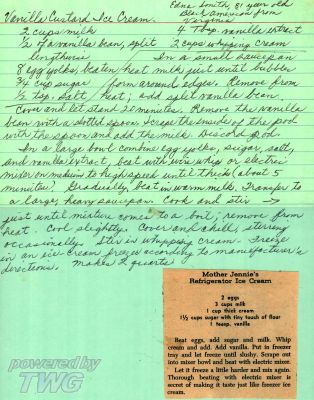 Vanilla Custard Ice Cream
Edna Smith, 81 year old
Black American from
Virginia
2 cups milk
4 tsp. vanilla extract
1/2 of a vanilla bean, split
2 cups whipping cream
lengthwise
In a small saucepan
8 egg yolks, beaten
heat milk just until bubbles
3/4 cup sugar
form around edges. Remove from
1/2 tsp. salt
heat; add split vanilla bean.
Cover and let stand 20 minutes. Remove the vanilla
bean with a slotted spoon. Scrape the inside of the pod
with the spoon and add the milk. Discard pod.
In a large bowl combine egg yolks, sugar, salt,
and vanilla extract, beat with wire whip or electric
mixer on medium to high speed until thick (about 5
minutes). Gradually beat in warm milk. Transfer to
a large, heavy saucepan. Cook and stir →
just until mixture comes to a boil; remove from
heat. Cool slightly. Cover and chill, stirring
occasionally. Stir in whipping cream. Freeze
in an ice-cream freezer according to manufacturer's
directions. Makes 2 quarts
Mother Jennie's
Refrigerator Ice Cream
2 eggs
3 cups milk
1 cup thick cream
1½ cups sugar with tiny touch of flour
1 teasp. vanilla
Beat eggs, add sugar and milk. Whip
cream and add. Add vanilla. Put in freezer
tray and let freeze until slushy. Scrape out
into mixer bowl and beat with electric mixer.
Let it freeze a little harder and mix again.
Thorough beating with electric mixer is
secret of making it taste just like freezer ice
cream.
powered by
TWG